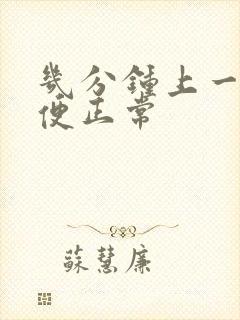 幾分鍾上一
便正常
蘇慧廉